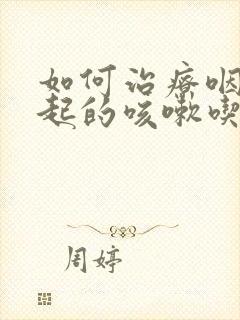 如何治疗咽
起的咳嗽喫
周婷